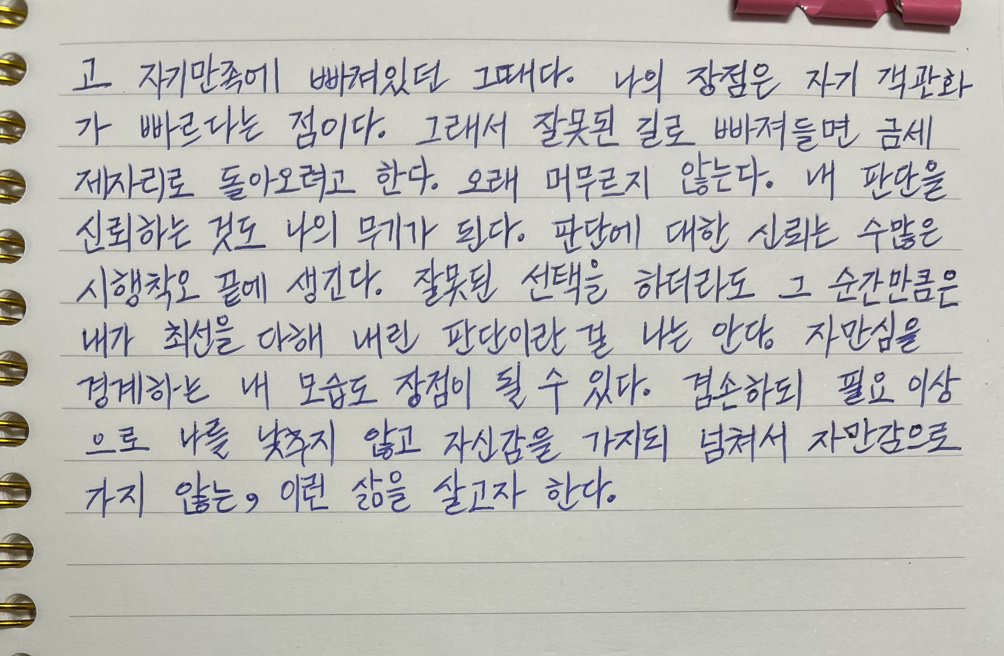 고 자기만족에 빠져있던 그때다. 나의 장점은 자기 객관화
가 빠르다는 점이다. 그래서 잘못된 길로 빠져들면 금세
제자리로 돌아오려고 한다. 오래 머무르지 않는다. 내 판단을
신뢰하는 것도 나의 무기가 된다. 판단에 대한 신뢰는 수많은
시행착오 끝에 생긴다. 잘못된 선택을 하더라도 그 순간만큼은
내가 최선을 다해 내린 판단이란 걸 나는 안다. 자만심을
경계하는 내 모습도 장점이 될 수 있다. 겸손하되 필요 이상
으로 나를 낮추지 않고 자신감을 가지되 넘쳐서 자만감으로
가지 않는, 이런 삶을 살고자 한다.